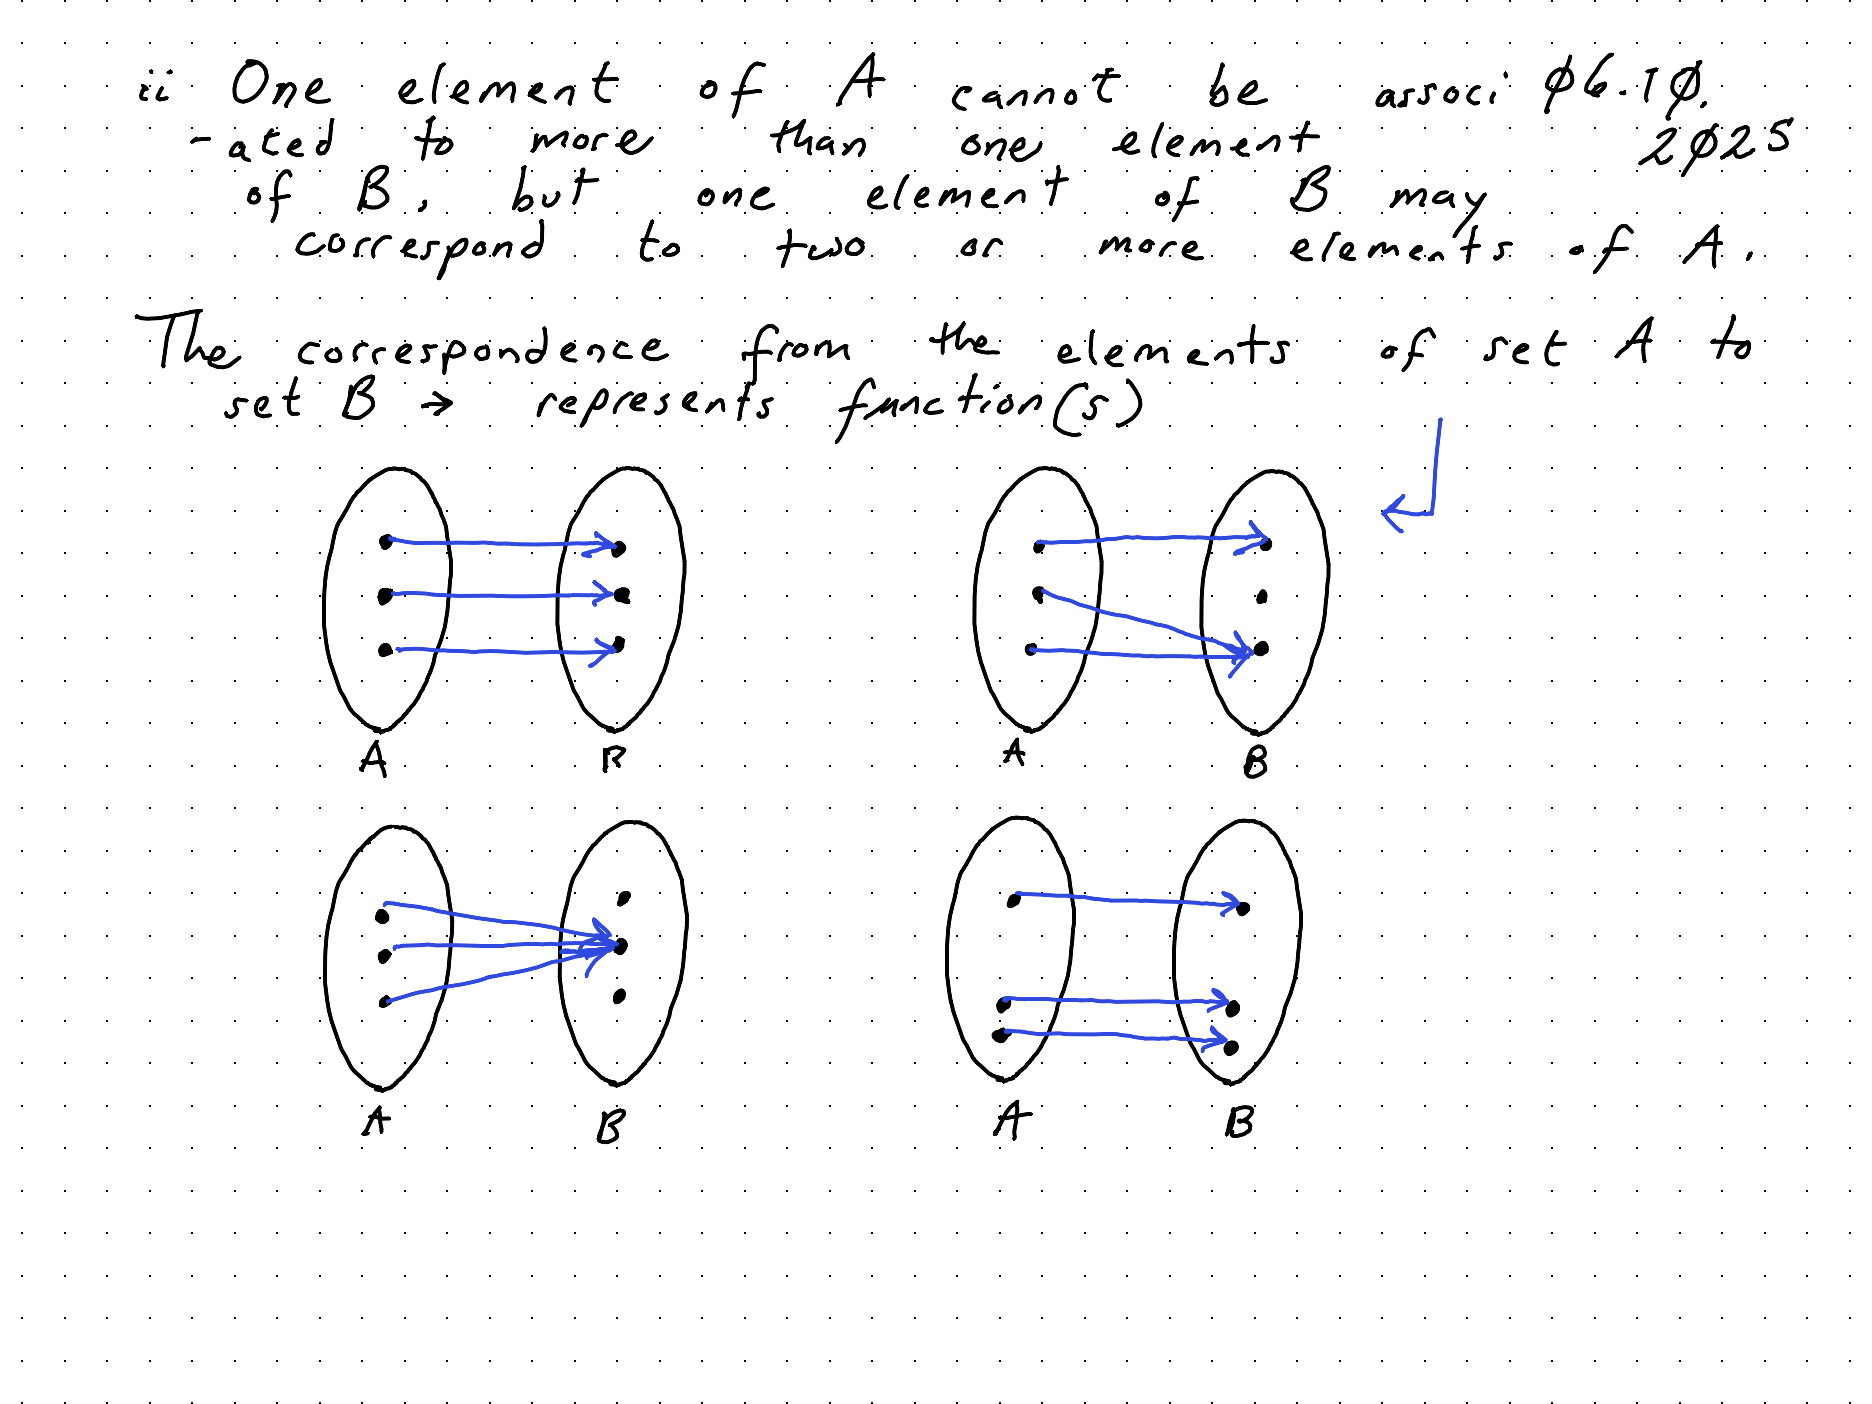 ii One element of A cannot be associ φ6.1φ.
-ated to more than one element 2φ25
of B, but one element of B may
correspond to two or more elements of A.
The correspondence from the elements of set A to
set B → represents function(s)
A B A B
A B A B